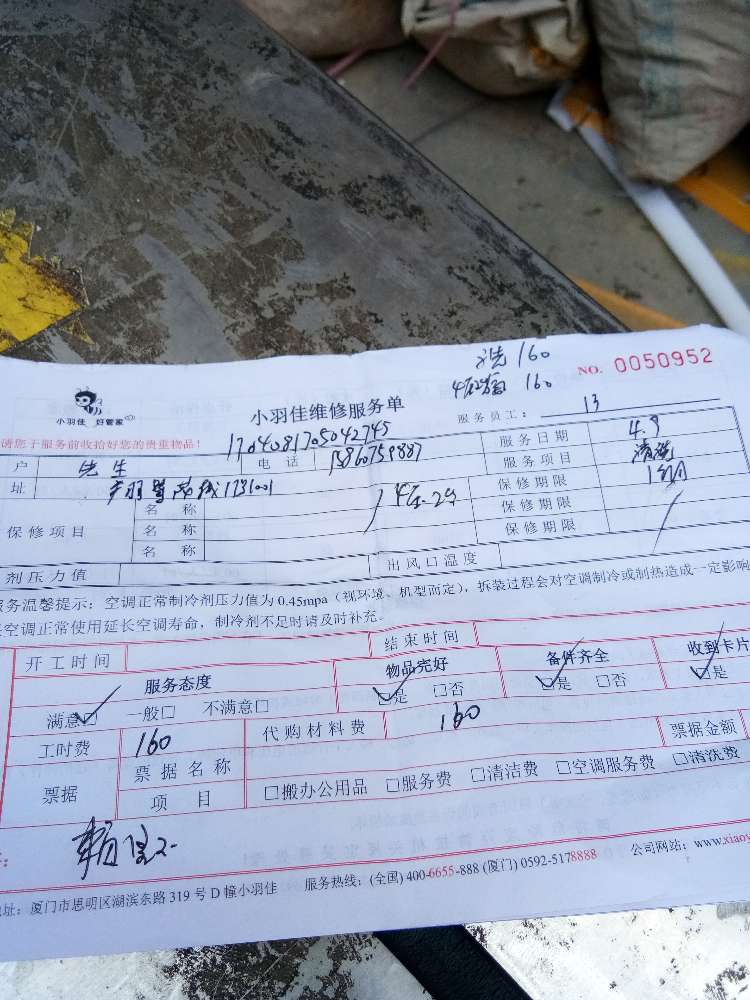 洗 160
NO. 0050952
160
小羽佳 好管家
小羽佳维修服务单
服务员工: 13
请您于服务前收拾好您的贵重物品!
1704081705042745
户 先生 电话 服务日期 4.9
服务项目 清洗
址 1231001
名 称 保修期限 1个月
保修项目 名 称 保修期限
名 称 保修期限
剂压力值 出风口温度
服务温馨提示: 空调正常制冷剂压力值为 0.45mpa (视环境、机型而定), 拆装过程会对空调制冷或制热造成一定影响
空调正常使用延长空调寿命, 制冷剂不足时请及时补充。
开工时间 结束时间
服务态度 物品完好 备件齐全 收到卡片
满意□ 一般□ 不满意□ □是 □否 □是 □否 □是
工时费 160 代购材料费 160
票据 票据名称 票据金额
项 目 □搬办公用品 □服务费 □清洁费 □空调服务费 □清洗费
地址: 厦门市思明区湖滨东路 319 号 D 幢小羽佳 服务热线: (全国) 400-6655-888 (厦门) 0592-5178888 公司网站: www.xiaoy